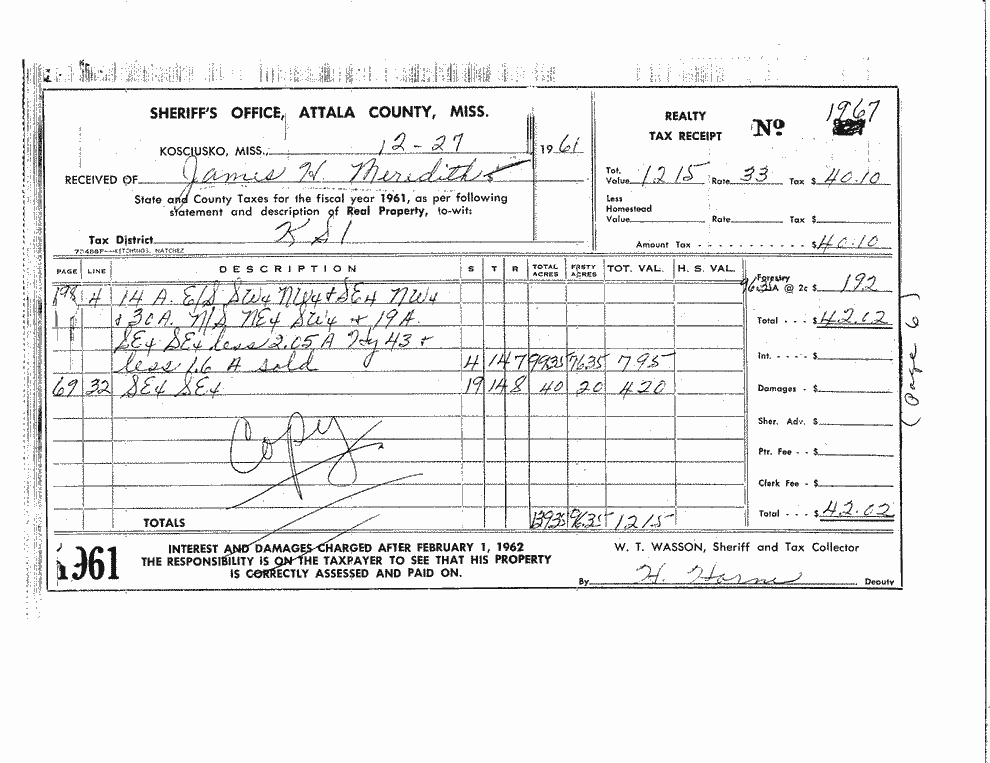 SHERIFF'S OFFICE, ATTALA COUNTY, MISS.
KOSCIUSKO, MISS., 12-27 1961
RECEIVED OF James H. Meredith
State and County Taxes for the fiscal year 1961, as per following
statement and description of Real Property, to-wit:
Tax District KS1
REALTY
TAX RECEIPT
No 1967
Tot. Value 1215 Rate 33 Tax $ 40.10
Less
Homestead
Value Rate Tax $
Amount Tax - - - - - - - - - - $ 40.10
PAGE LINE DESCRIPTION S T R TOTAL ACRES FRSTY ACRES TOT. VAL. H. S. VAL.
198 4 14 A. E/S SW4 NW4 + SE4 NW4
+ 30A. N/S NE4 SW4 + 19A
SE4 SE4 less 2.05 A Hy 43 +
less 1.6 A sold 4 14 7 99.35 76.35 795
69 32 SE4 SE4 19 14 8 40 20 420
Copy
TOTALS 139.35 96.35 1215
Forestry
96.35A @ 2c $ 192
Total - - - $ 42.02
Int. - - - - $
Damages - $
Sher. Adv. $
Ptr. Fee - - $
Clerk Fee - $
Total - - - $ 42.02
(Page 6)
1961
INTEREST AND DAMAGES CHARGED AFTER FEBRUARY 1, 1962
THE RESPONSIBILITY IS ON THE TAXPAYER TO SEE THAT HIS PROPERTY
IS CORRECTLY ASSESSED AND PAID ON.
W. T. WASSON, Sheriff and Tax Collector
By H. Horne Deputy